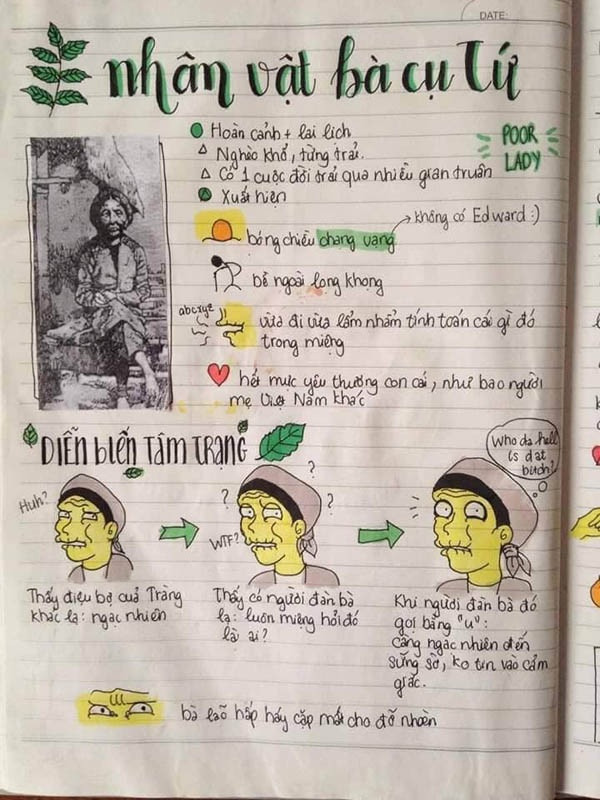 DATE:
nhân vật bà cụ Tứ
Hoàn cảnh + lai lịch
Nghèo khổ, từng trải.
Có 1 cuộc đời trải qua nhiều gian truân
POOR
LADY
Xuất hiện
không có Edward :)
bóng chiều chạng vạng
bề ngoài lọng khọng
abcxyz
vừa đi vừa lẩm nhẩm tính toán cái gì đó
trong miệng
hết mực yêu thương con cái, như bao người
mẹ Việt Nam khác
DIỄN BIẾN TÂM TRẠNG
Who da hell
is dat
bitch?
Huh?
?
?
?
WTF?
Thấy điệu bộ của Tràng
khác lạ: ngạc nhiên
Thấy có người đàn bà
lạ: luôn miệng hỏi đó
là ai?
Khi người đàn bà đó
gọi bằng "u":
càng ngạc nhiên đến
sững sờ, ko tin vào cảm
giác.
bà lão hấp háy cặp mắt cho đỡ nhoèn